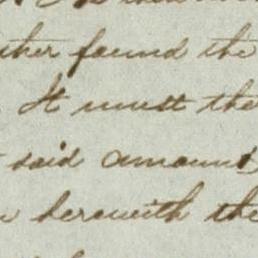 found the
It must the
said amount
herewith the